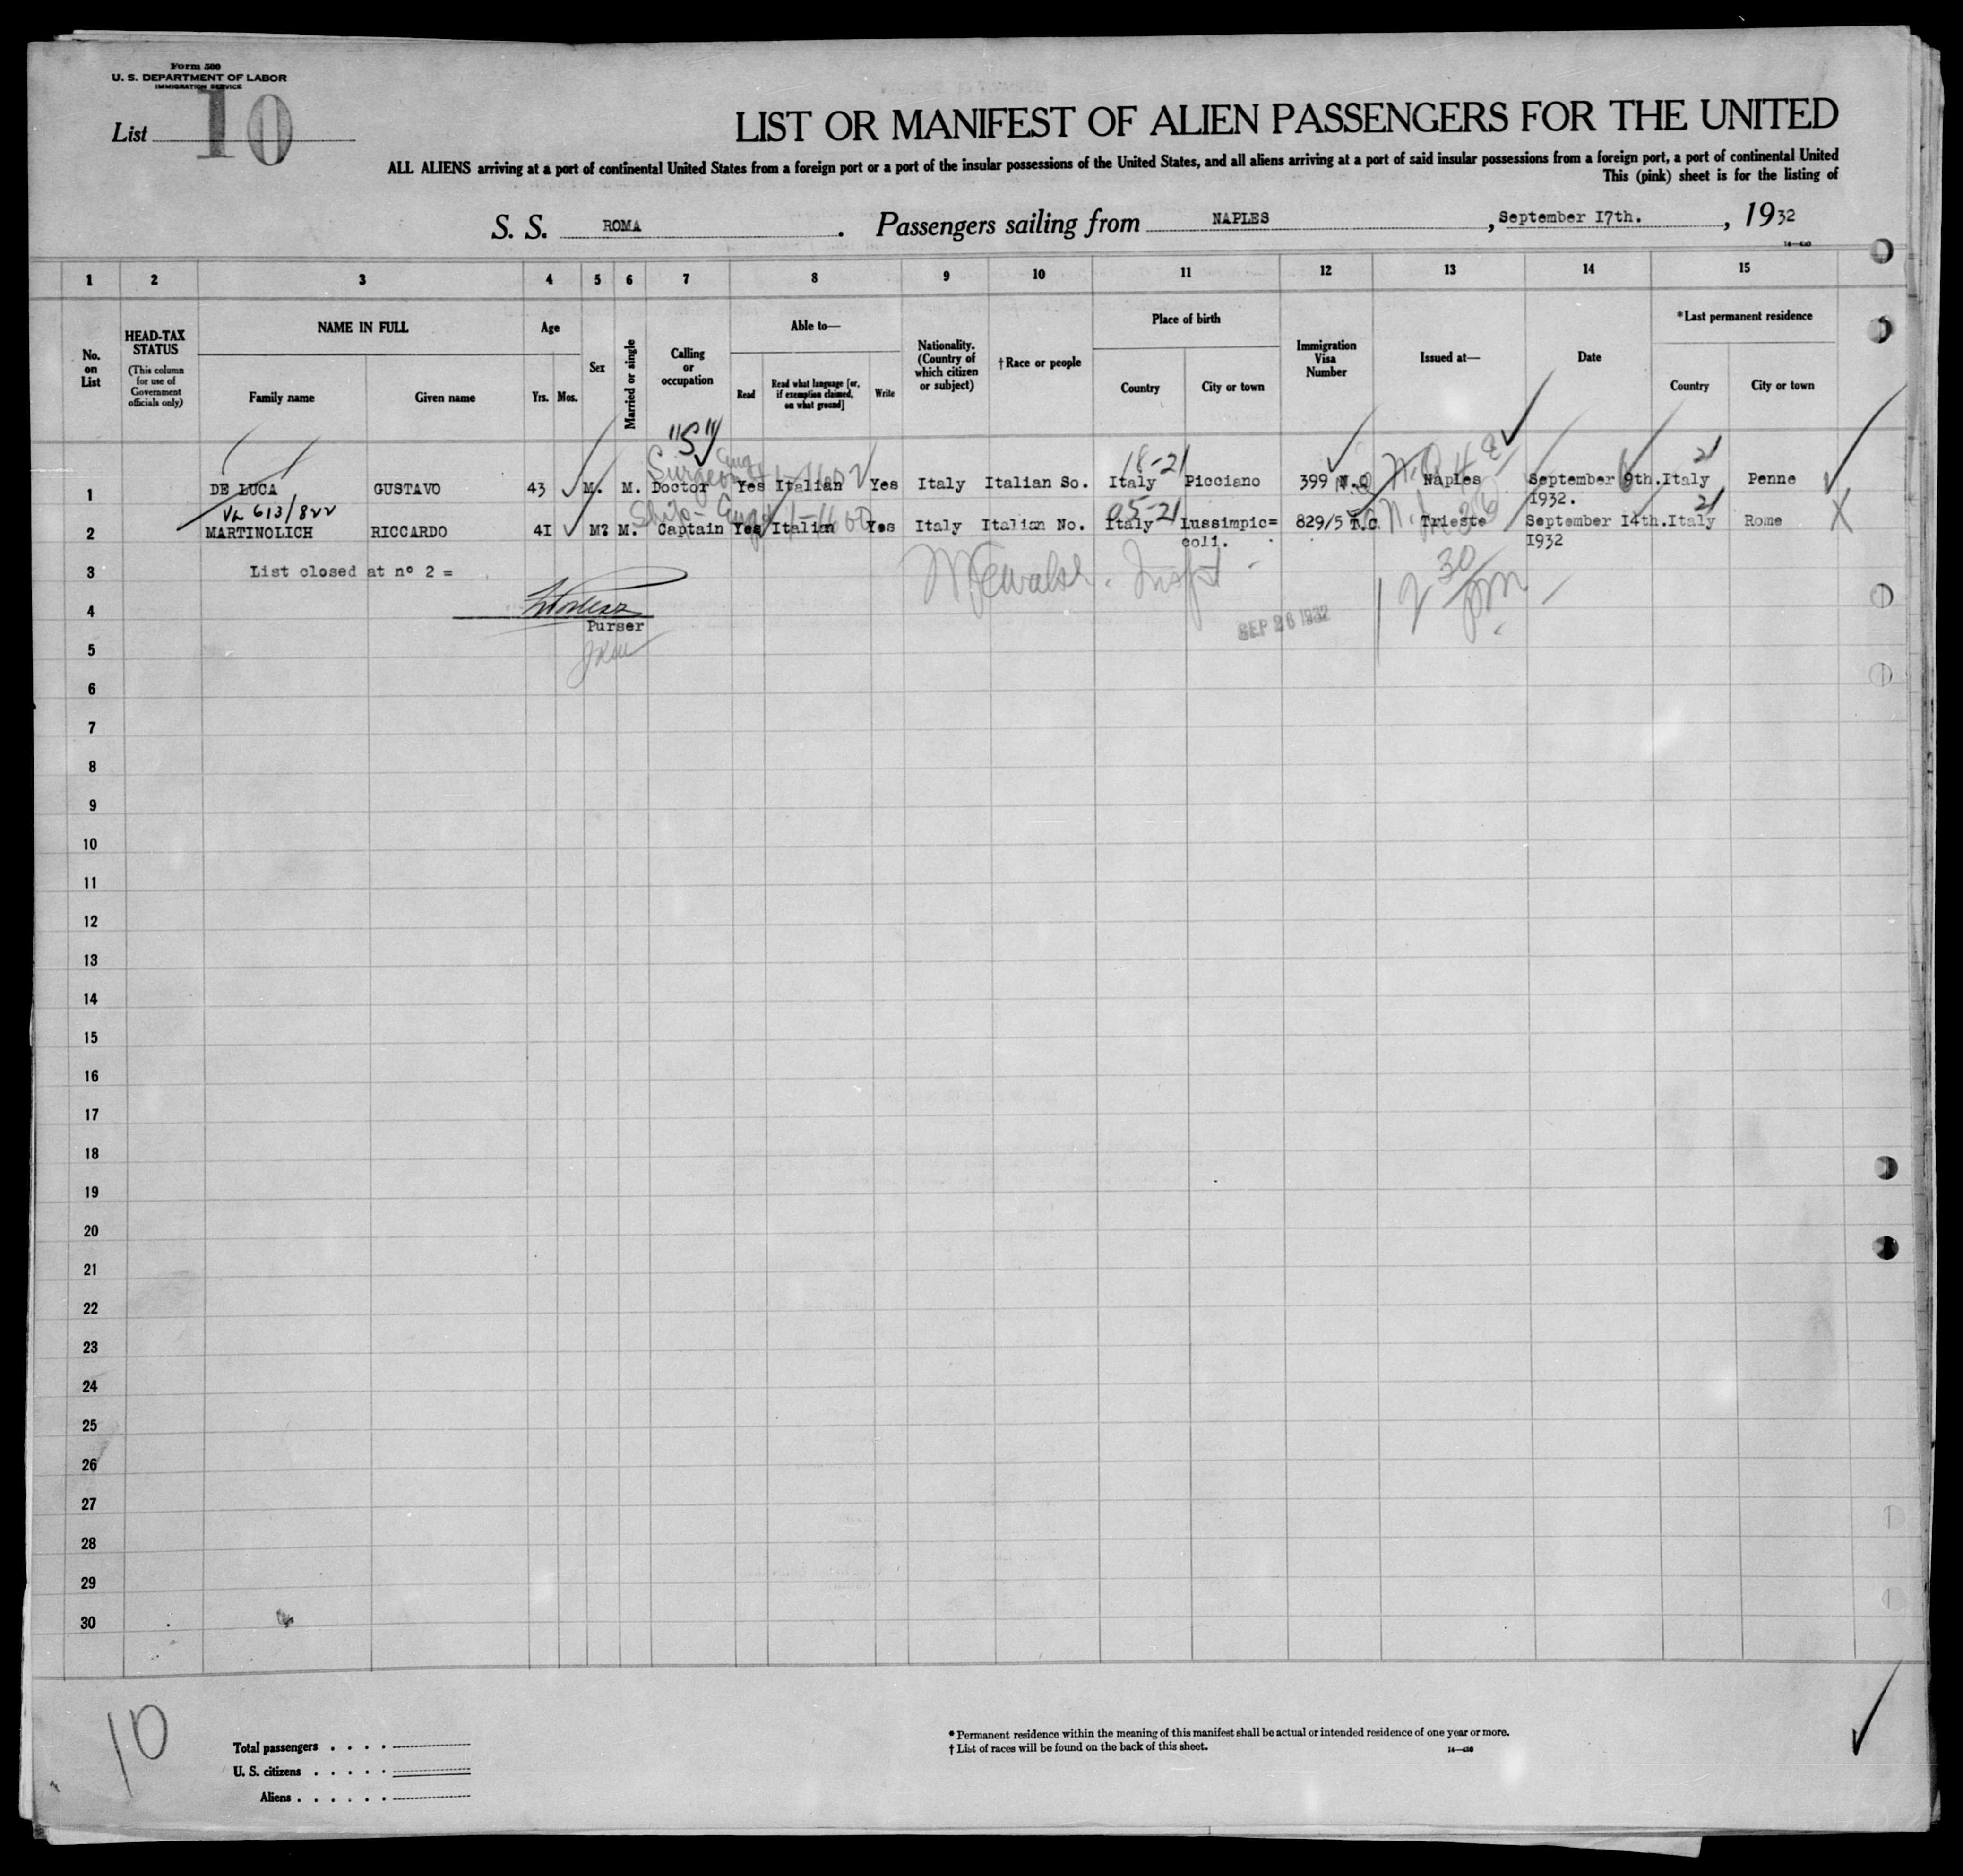 Form 500
U. S. DEPARTMENT OF LABOR
IMMIGRATION SERVICE
List 10
LIST OR MANIFEST OF ALIEN PASSENGERS FOR THE UNITED
ALL ALIENS arriving at a port of continental United States from a foreign port or a port of the insular possessions of the United States, and all aliens arriving at a port of said insular possessions from a foreign port, a port of continental United
This (pink) sheet is for the listing of
S. S. ROMA. Passengers sailing from NAPLES, September 17th., 1932
1 2 3 4 5 6 7 8 9 10 11 12 13 14 15
No. on List
HEAD-TAX STATUS
(This column for use of Government officials only)
NAME IN FULL
Family name Given name
Age
Yrs. Mos.
Sex
Married or single
Calling or occupation
Able to—
Read
Read what language [or, if exemption claimed, on what ground]
Write
Nationality. (Country of which citizen or subject)
†Race or people
Place of birth
Country City or town
Immigration Visa Number
Issued at—
Date
*Last permanent residence
Country City or town
"S"
Surgeon Eng 18-21 21
1 DE LUCA GUSTAVO 43 M. M. Doctor Yes Italian Yes Italy Italian So. Italy Picciano 399 N.Q Naples September 9th. Italy Penne
1932.
VL 613/822 Ship- Eng 05-21 21
2 MARTINOLICH RICCARDO 41 M? M. Captain Yes Italian Yes Italy Italian No. Italy Lussimpic= 829/5 T.C. Trieste September 14th. Italy Rome X
coli. 1932
3 List closed at nº 2 =
Insp
12 30 pm
4
Purser
SEP 26 1932
5
6
7
8
9
10
11
12
13
14
15
16
17
18
19
20
21
22
23
24
25
26
27
28
29
30
10
Total passengers . . . .
U. S. citizens . . . . .
Aliens . . . . . .
* Permanent residence within the meaning of this manifest shall be actual or intended residence of one year or more.
† List of races will be found on the back of this sheet.